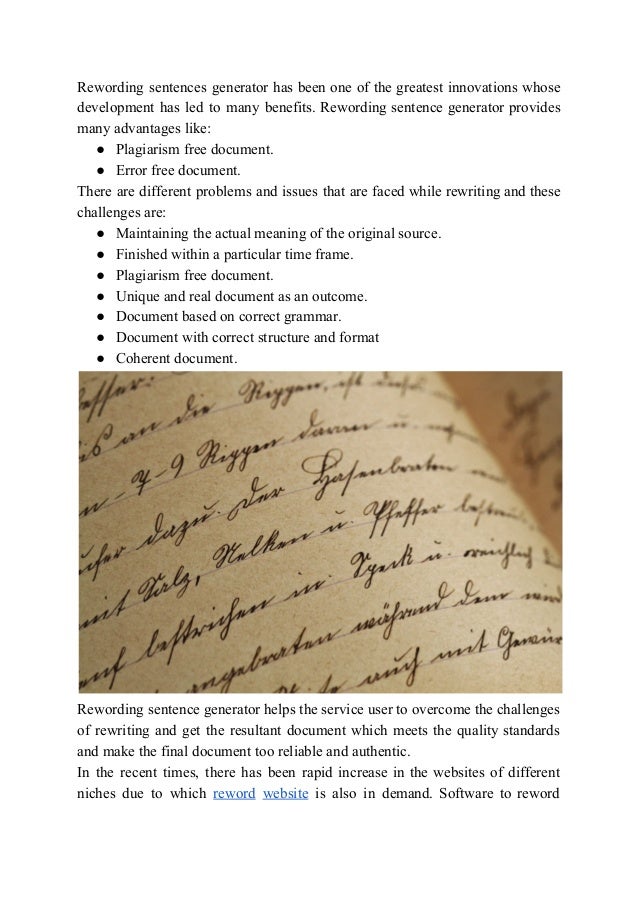 Rewording sentences generator has been one of the greatest innovations whose
development has led to many benefits. Rewording sentence generator provides
many advantages like:
● Plagiarism free document.
● Error free document.
There are different problems and issues that are faced while rewriting and these
challenges are:
● Maintaining the actual meaning of the original source.
● Finished within a particular time frame.
● Plagiarism free document.
● Unique and real document as an outcome.
● Document based on correct grammar.
● Document with correct structure and format
● Coherent document.
an die Rippen, ist
7-9 Rippen darin u.
dazu. Der Hasenbraten
mit Salz, Nelken u. Pfeffer
bestrichen in Speck u. reichlich
angebraten während dem
auch mit
Rewording sentence generator helps the service user to overcome the challenges
of rewriting and get the resultant document which meets the quality standards
and make the final document too reliable and authentic.
In the recent times, there has been rapid increase in the websites of different
niches due to which reword website is also in demand. Software to reword